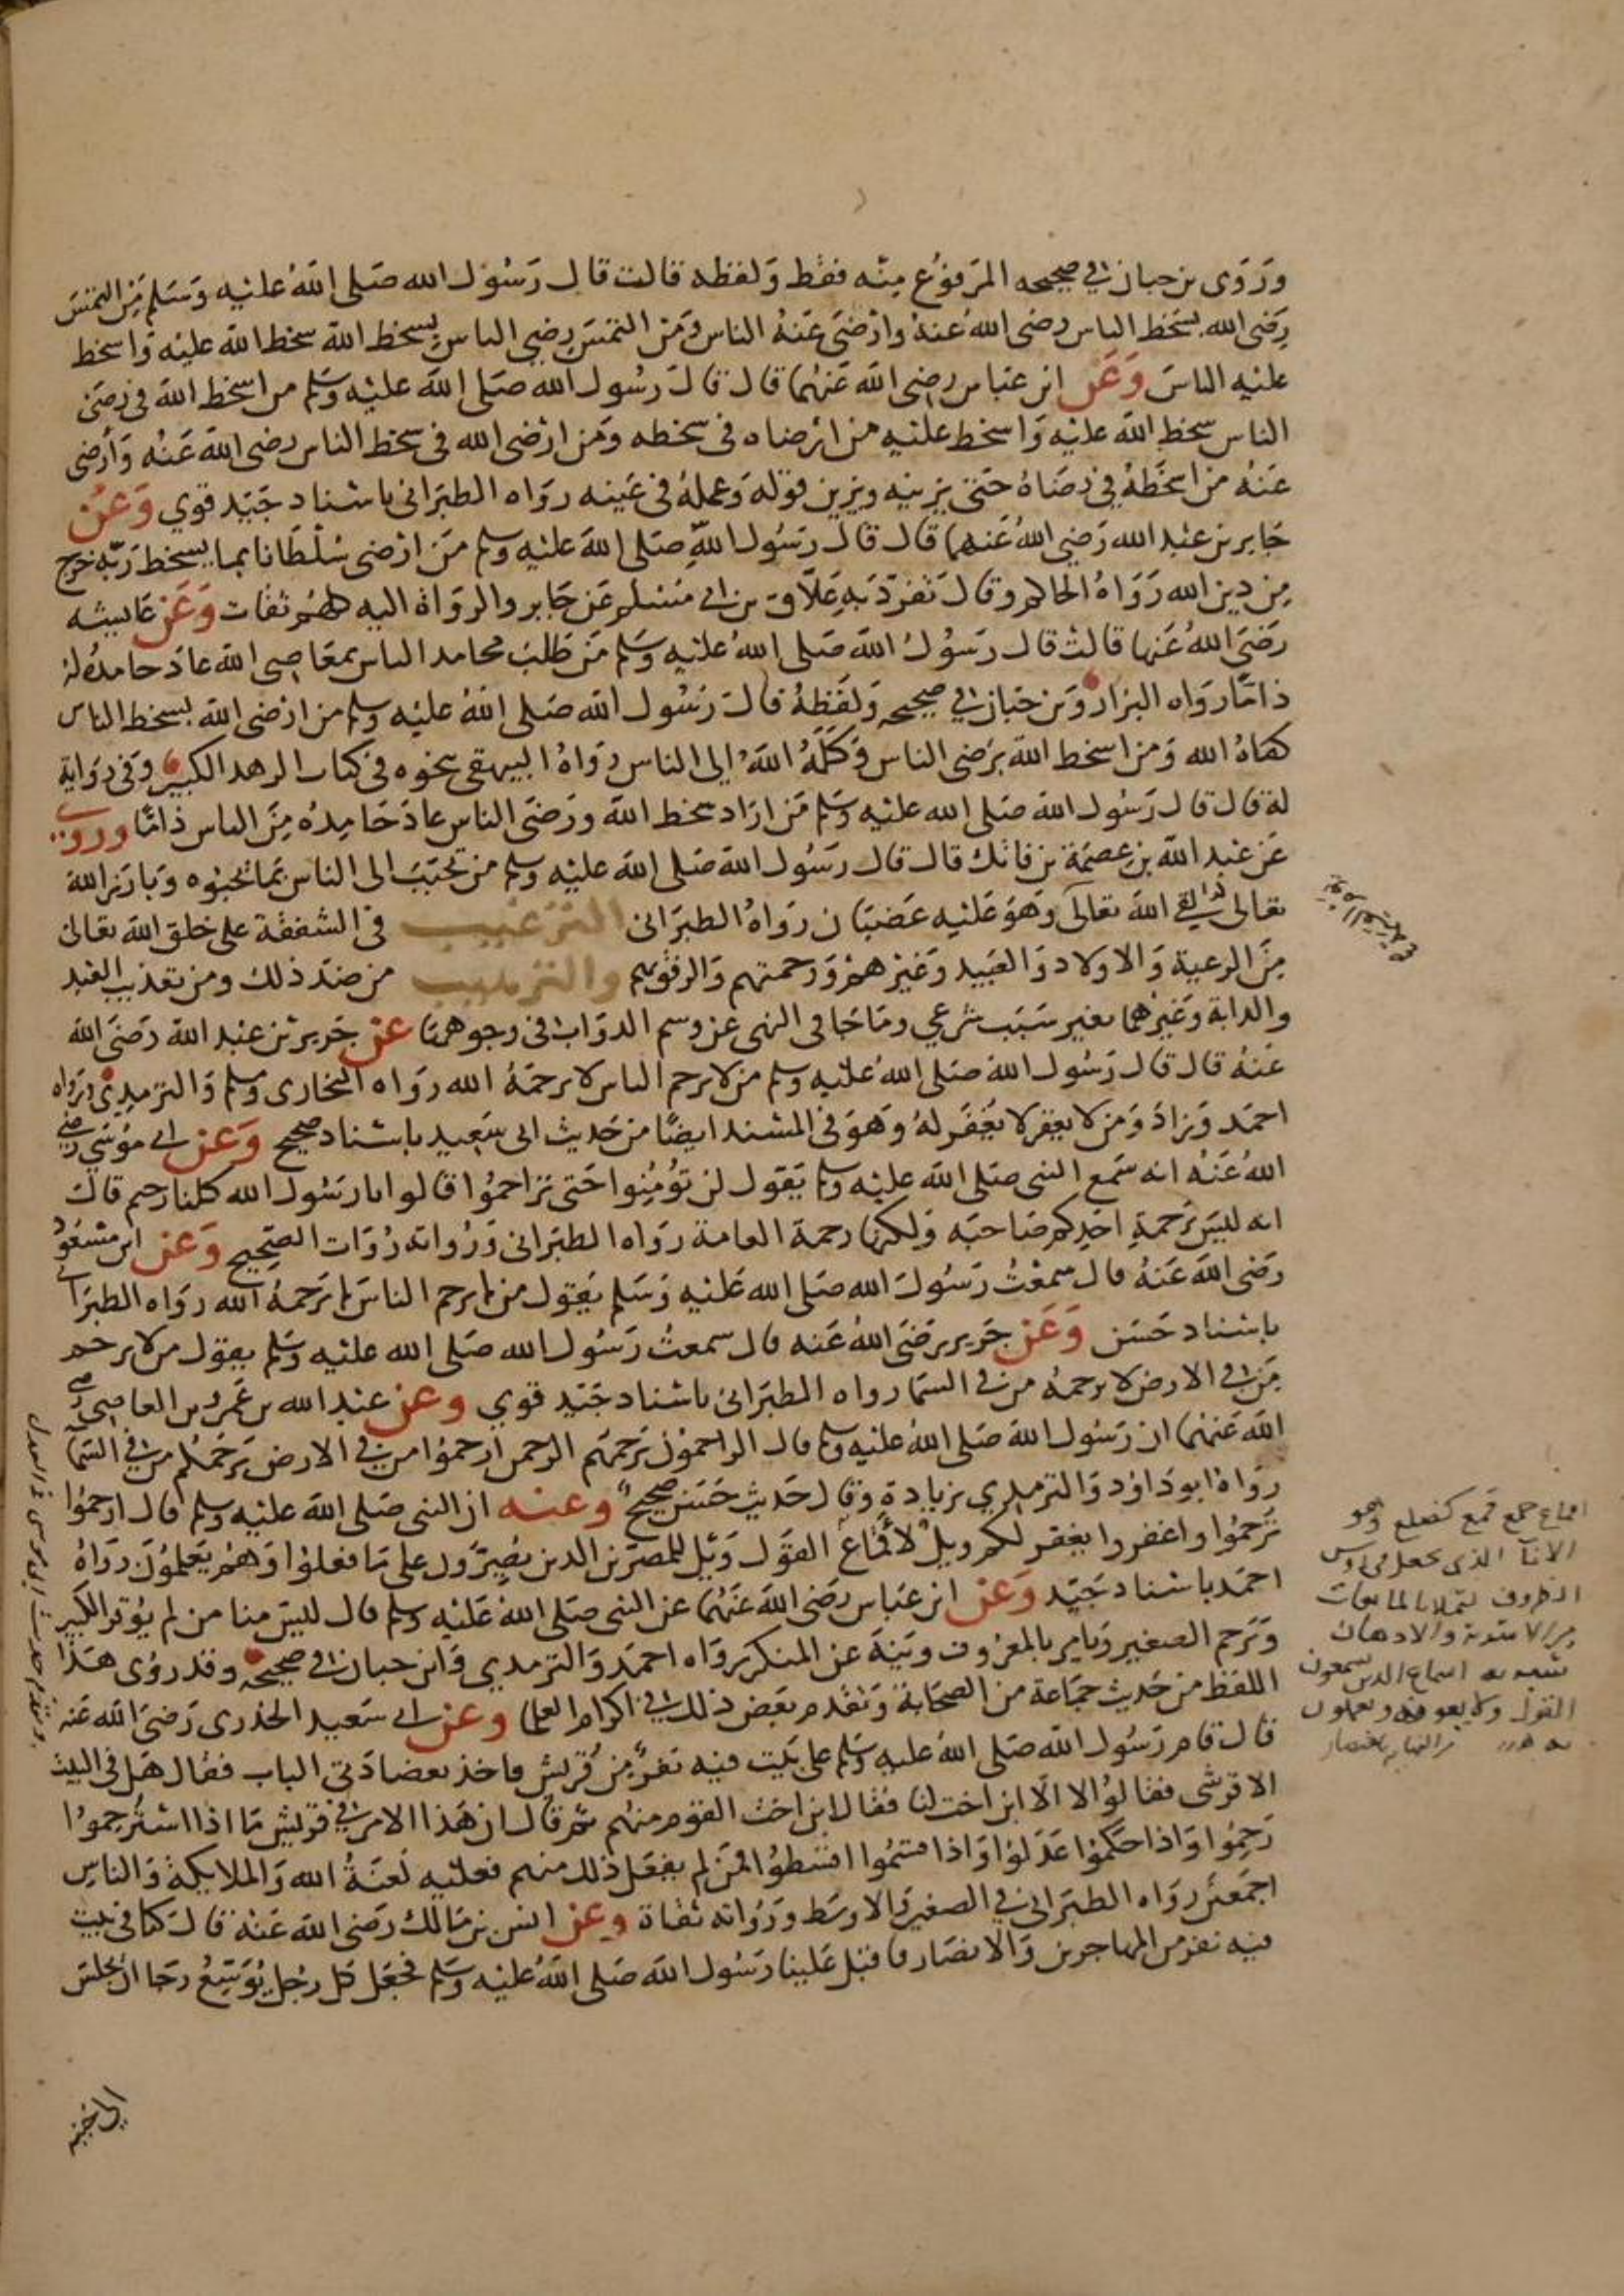 وروى بن حبان في صحيحه المرفوع منه فقط ولفظه قالت قال رسول الله صلى الله عليه وسلم من التمس
رضى الله بسخط الناس رضى الله عنه وارضى عنه الناس ومن التمس رضى الناس بسخط الله سخط الله عليه واسخط
عليه الناس وعن ابن عباس رضى الله عنهما قال قال رسول الله صلى الله عليه وسلم من اسخط الله في رضى
الناس سخط الله عليه واسخط عليه من ارضاه في سخطه ومن ارضى الله في سخط الناس رضى الله عنه وأرضى
عنه من اسخطه في رضاه حتى يزينه ويزين قوله وعمله في عينه رواه الطبراني باسناد جيد قوي وعن
جابر بن عبد الله رضي الله عنهما قال قال رسول الله صلى الله عليه وسلم من ارضى سلطانا بما يسخط ربه خرج
من دين الله رواه الحاكم وقال تفرد به علاق بن ابي مسلم عن جابر والرواة اليه كلهم ثقات وعن عايشه
رضى الله عنها قالت قال رسول الله صلى الله عليه وسلم من طلب محامد الناس بمعاصي الله عاد حامده له
ذاما رواه البزار وبن حبان في صحيحه ولفظه قال رسول الله صلى الله عليه وسلم من ارضى الله بسخط الناس
كفاه الله ومن اسخط الله برضى الناس وكله الله الى الناس رواه البيهقى بنحوه في كتاب الزهد الكبير وفي رواية
له قال قال رسول الله صلى الله عليه وسلم من اراد سخط الله ورضى الناس عاد حامده من الناس ذاما وروي
عن عبد الله بن عصمة بن فاتك قال قال رسول الله صلى الله عليه وسلم من تحبب الى الناس بما تحبوه وبارز الله
تعالى لقي الله تعالى وهو عليه غضبان رواه الطبراني الترغيب في الشفقة على خلق الله تعالى
من الرعية والاولاد والعبيد وغيرهم ورحمتهم والرفق بهم والترهيب من ضد ذلك ومن تعذيب العبد
والدابة وغيرهما بغير سبب شرعي وما جا في النهي عن وسم الدواب في وجوهها عن جرير بن عبد الله رضى الله
عنه قال قال رسول الله صلى الله عليه وسلم من لا يرحم الناس لا يرحمه الله رواه البخارى ومسلم والترمذي ورواه
احمد وزاد ومن لا يغفر لا يغفر له وهو في المسند ايضا من حديث ابى سعيد باسناد صحيح وعن ابي موسى رضي
الله عنه انه سمع النبى صلى الله عليه وسلم يقول لن تؤمنوا حتى تراحموا قالوا يا رسول الله كلنا رحيم قال
انه ليس برحمة احدكم صاحبه ولكنها رحمة العامة رواه الطبراني ورواته روات الصحيح وعن ابن مسعود
رضى الله عنه قال سمعت رسول الله صلى الله عليه وسلم يقول من لم يرحم الناس لم يرحمه الله رواه الطبراني
باسناد حسن وعن جرير رضى الله عنه قال سمعت رسول الله صلى الله عليه وسلم يقول من لا يرحم
من في الارض لا يرحمه من في السما رواه الطبراني باسناد جيد قوي وعن عبد الله بن عمرو بن العاصي رضي
الله عنهما ان رسول الله صلى الله عليه وسلم قال الراحمون يرحمهم الرحمن ارحموا من في الارض يرحمكم من في السما
رواه ابو داود والترمذي بزيادة وقال حديث حسن صحيح وعنه ان النبى صلى الله عليه وسلم قال ارحموا
ترحموا واغفروا يغفر لكم ويل لأقماع القول ويل للمصرين الدين يصرون على ما فعلوا وهم يعلمون رواه
احمد باسناد جيد وعن ابن عباس رضى الله عنهما عن النبى صلى الله عليه وسلم قال ليس منا من لم يوقر الكبير
ويرحم الصغير ويامر بالمعروف وينه عن المنكر رواه احمد والترمدي وابن حبان في صحيحه وقد روى هذا
اللفظ من حديث جماعة من الصحابة وتقدم بعض ذلك في اكرام العلما وعن ابي سعيد الخدرى رضى الله عنه
قال قام رسول الله صلى الله عليه وسلم على بيت فيه نفر من قريش فاخذ بعضادتي الباب فقال هل في البيت
الا قرشى فقالوا لا الا ابن اخت لنا فقال ابن اخت القوم منهم ثم قال ان هذا الامر في قريش ما اذا استرحموا
رحموا واذا حكموا عدلوا واذا قسموا اقسطوا فمن لم يفعل ذلك منهم فعليه لعنة الله والملايكة والناس
اجمعين رواه الطبراني في الصغير والاوسط ورواته ثقاة وعن انس بن مالك رضى الله عنه قال كنا في بيت
فيه نفر من المهاجرين والانصار فاقبل علينا رسول الله صلى الله عليه وسلم فجعل كل رجل يوسع رجا ان يجلس
الى جنبه
اقماع جمع قمع كضلع وهو
الانآ الذى يجعل في روس
الظروف لتملا بالمايعات
من الاشربة والادهان
شبه به اسماع الدين يسمعون
القول ولا يعونه ويعملون
به من النهاية باختصار